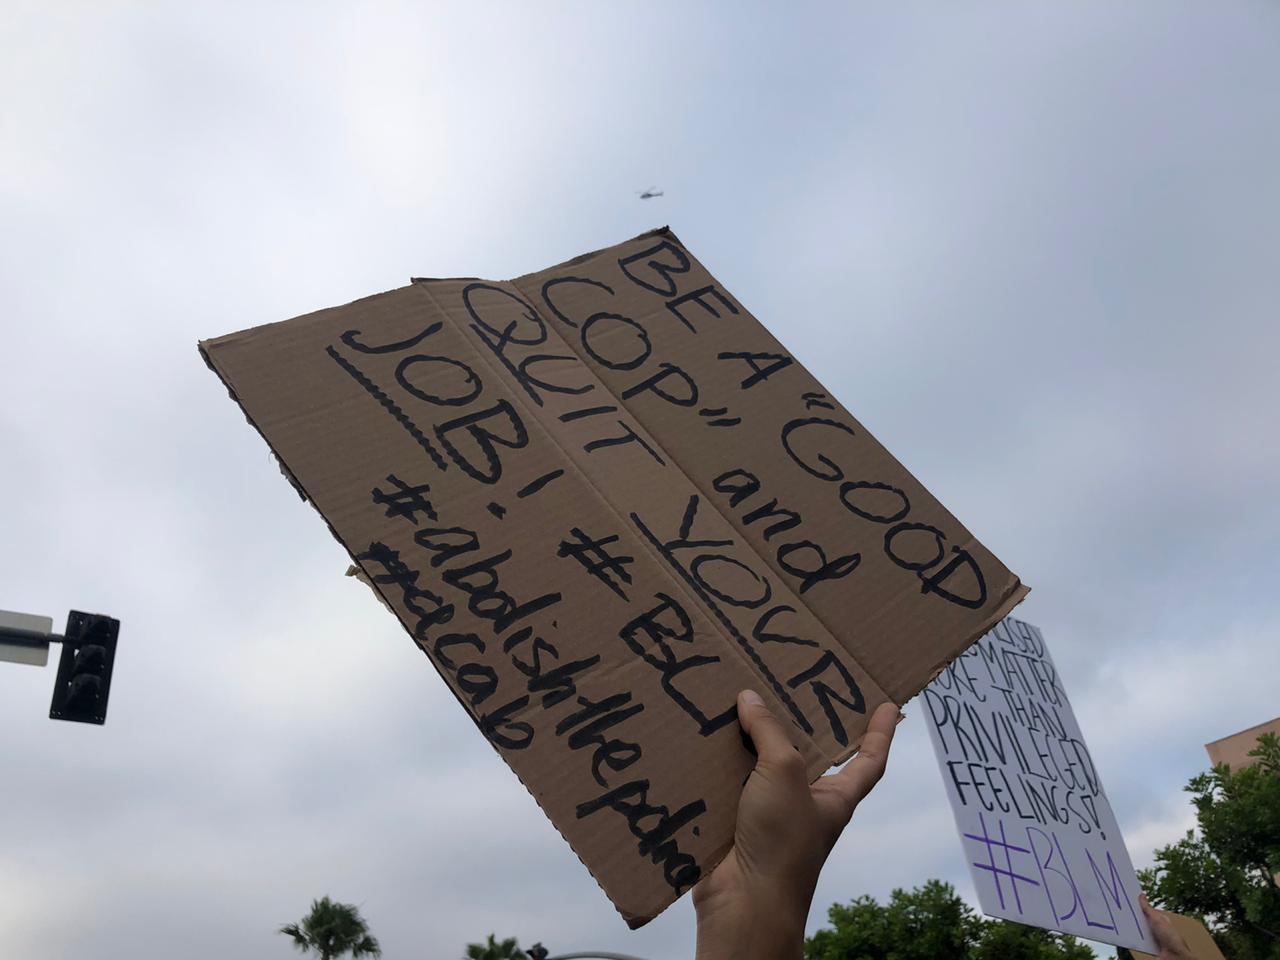 BE A "GOOD
COP" and
QUIT YOUR
JOB! #BL
#abolishthepolice
#acab
MATTER
THAN
PRIVILEGED
FEELINGS!
#BLM